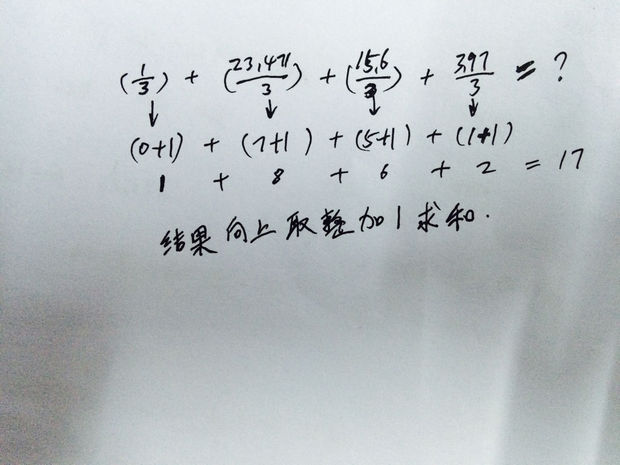 (1/3) + (23,471/3) + (15,6/3) + 3,97/3 = ?
↓ ↓ ↓ ↓
(0+1) + (7+1) + (5+1) + (1+1)
1 + 8 + 6 + 2 = 17
结果向上取整加1求和.